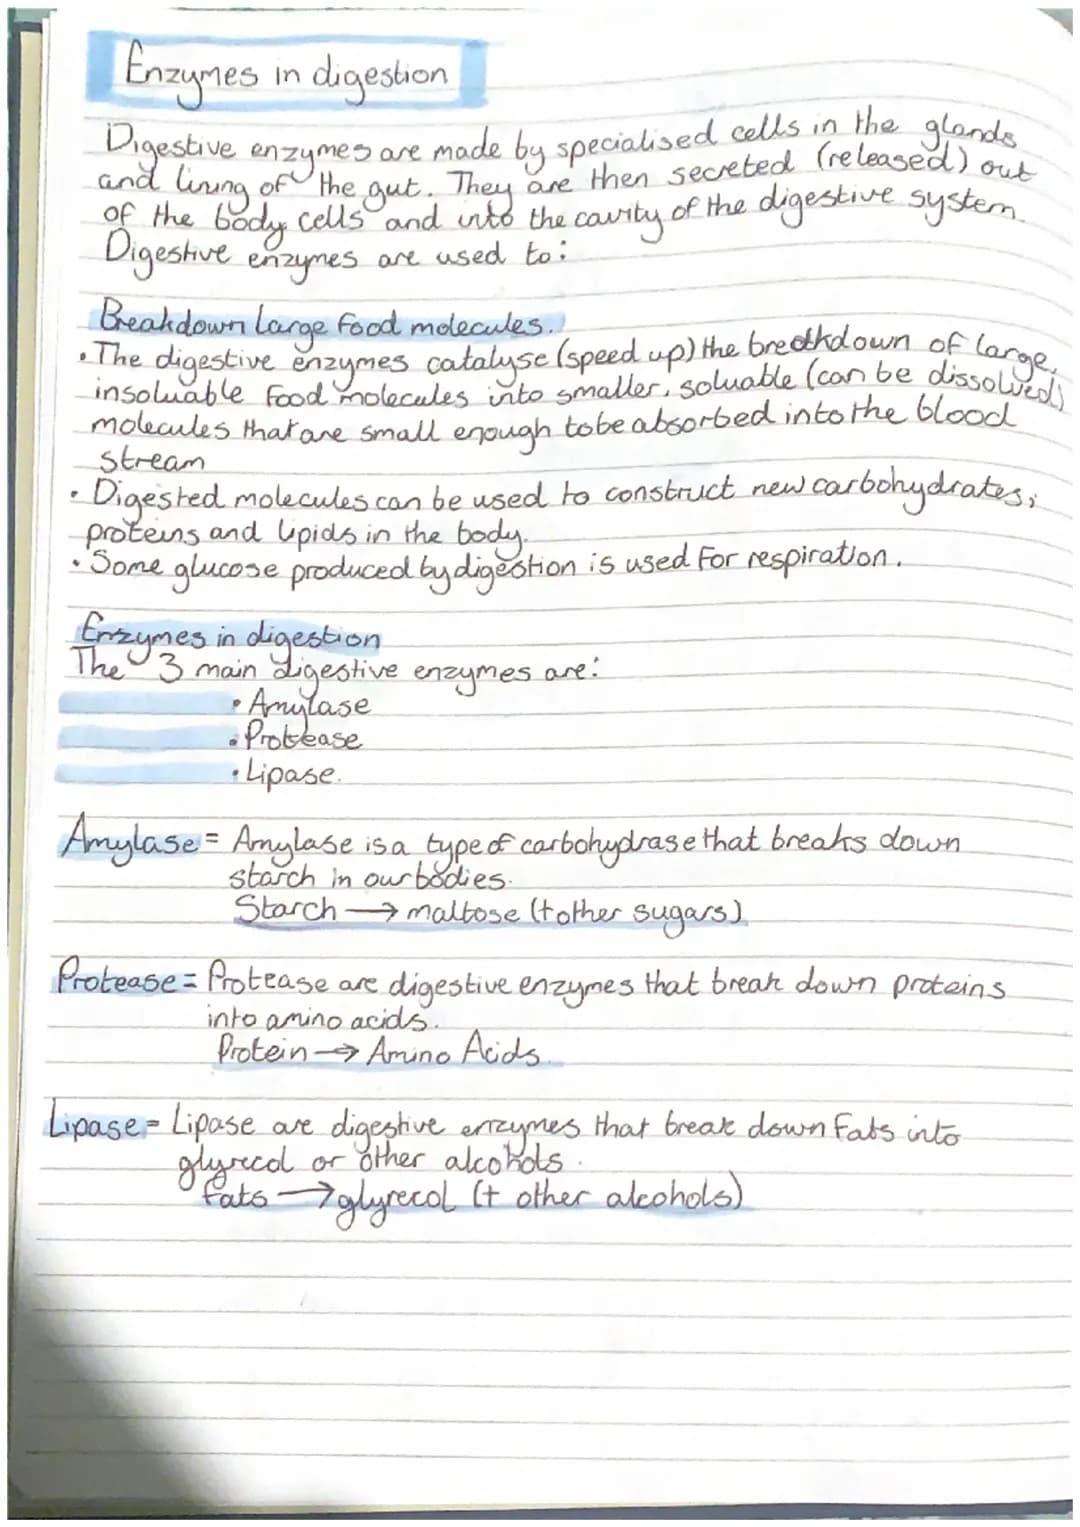 Enzymes in digestion
Digestive enzymes are made by specialised cells in the glands
and lining of the gut. They are then secreted (released) out
of the body cells and into the cavity of the digestive system.
Digestive enzymes are used to:
Breakdown large food molecules.
• The digestive enzymes catalyse (speed up) the breatkdown of large,
insoluable food molecules into smaller, soluable (can be dissolved)
molecules that are small enough to be absorbed into the blood
stream
• Digested molecules can be used to construct new carbohydrates,
proteins and lipids in the body.
• Some glucose produced by digestion is used for respiration.
Enzymes in digestion
The 3 main digestive enzymes are:
• Amylase
• Protease
• Lipase.
Amylase = Amylase is a type of carbohydrase that breaks down
starch in our bodies.
Starch → maltose (+ other sugars)
Protease = Protease are digestive enzymes that break down proteins
into amino acids.
Protein → Amino Acids.
Lipase = Lipase are digestive enzymes that break down fats into
glyrecol or other alcohols.
fats → glyrecol (+ other alcohols)